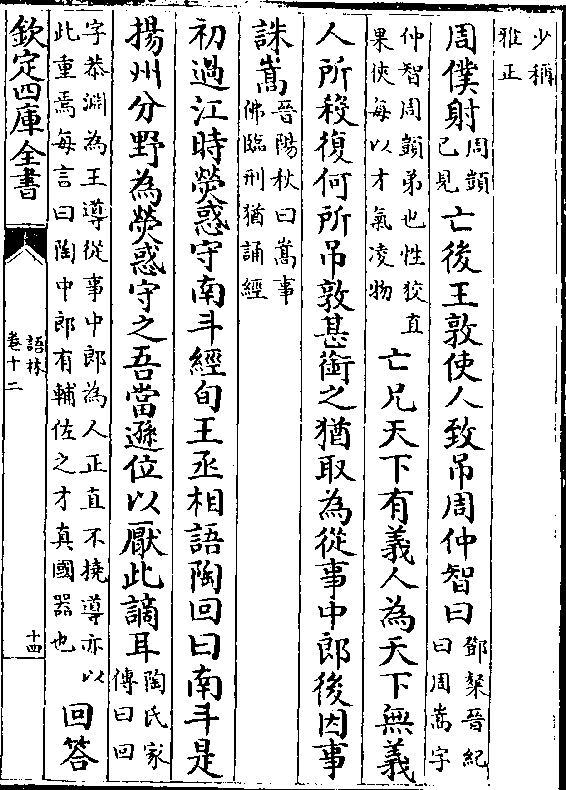 少稱
雅正
周僕射周顗已見亡後王敦使人致吊周仲智曰鄧粲晉紀曰周嵩字
仲智周顗弟也性狡直果俠每以才氣凌物亡兄天下有義人為天下無義
人所殺復何所吊敦甚銜之猶取為從事中郎後因事
誅嵩晉陽秋曰嵩事佛臨刑猶誦經
初過江時熒惑守南斗經旬王丞相語陶回曰南斗是
揚州分野為熒惑守之吾當遜位以厭此謫耳陶氏家傳曰回
字恭淵為王導從事中郎為人正直不撓導亦以此重焉每言曰陶中郎有輔佐之才真國器也回答
欽定四庫全書
語林
卷十二
十四